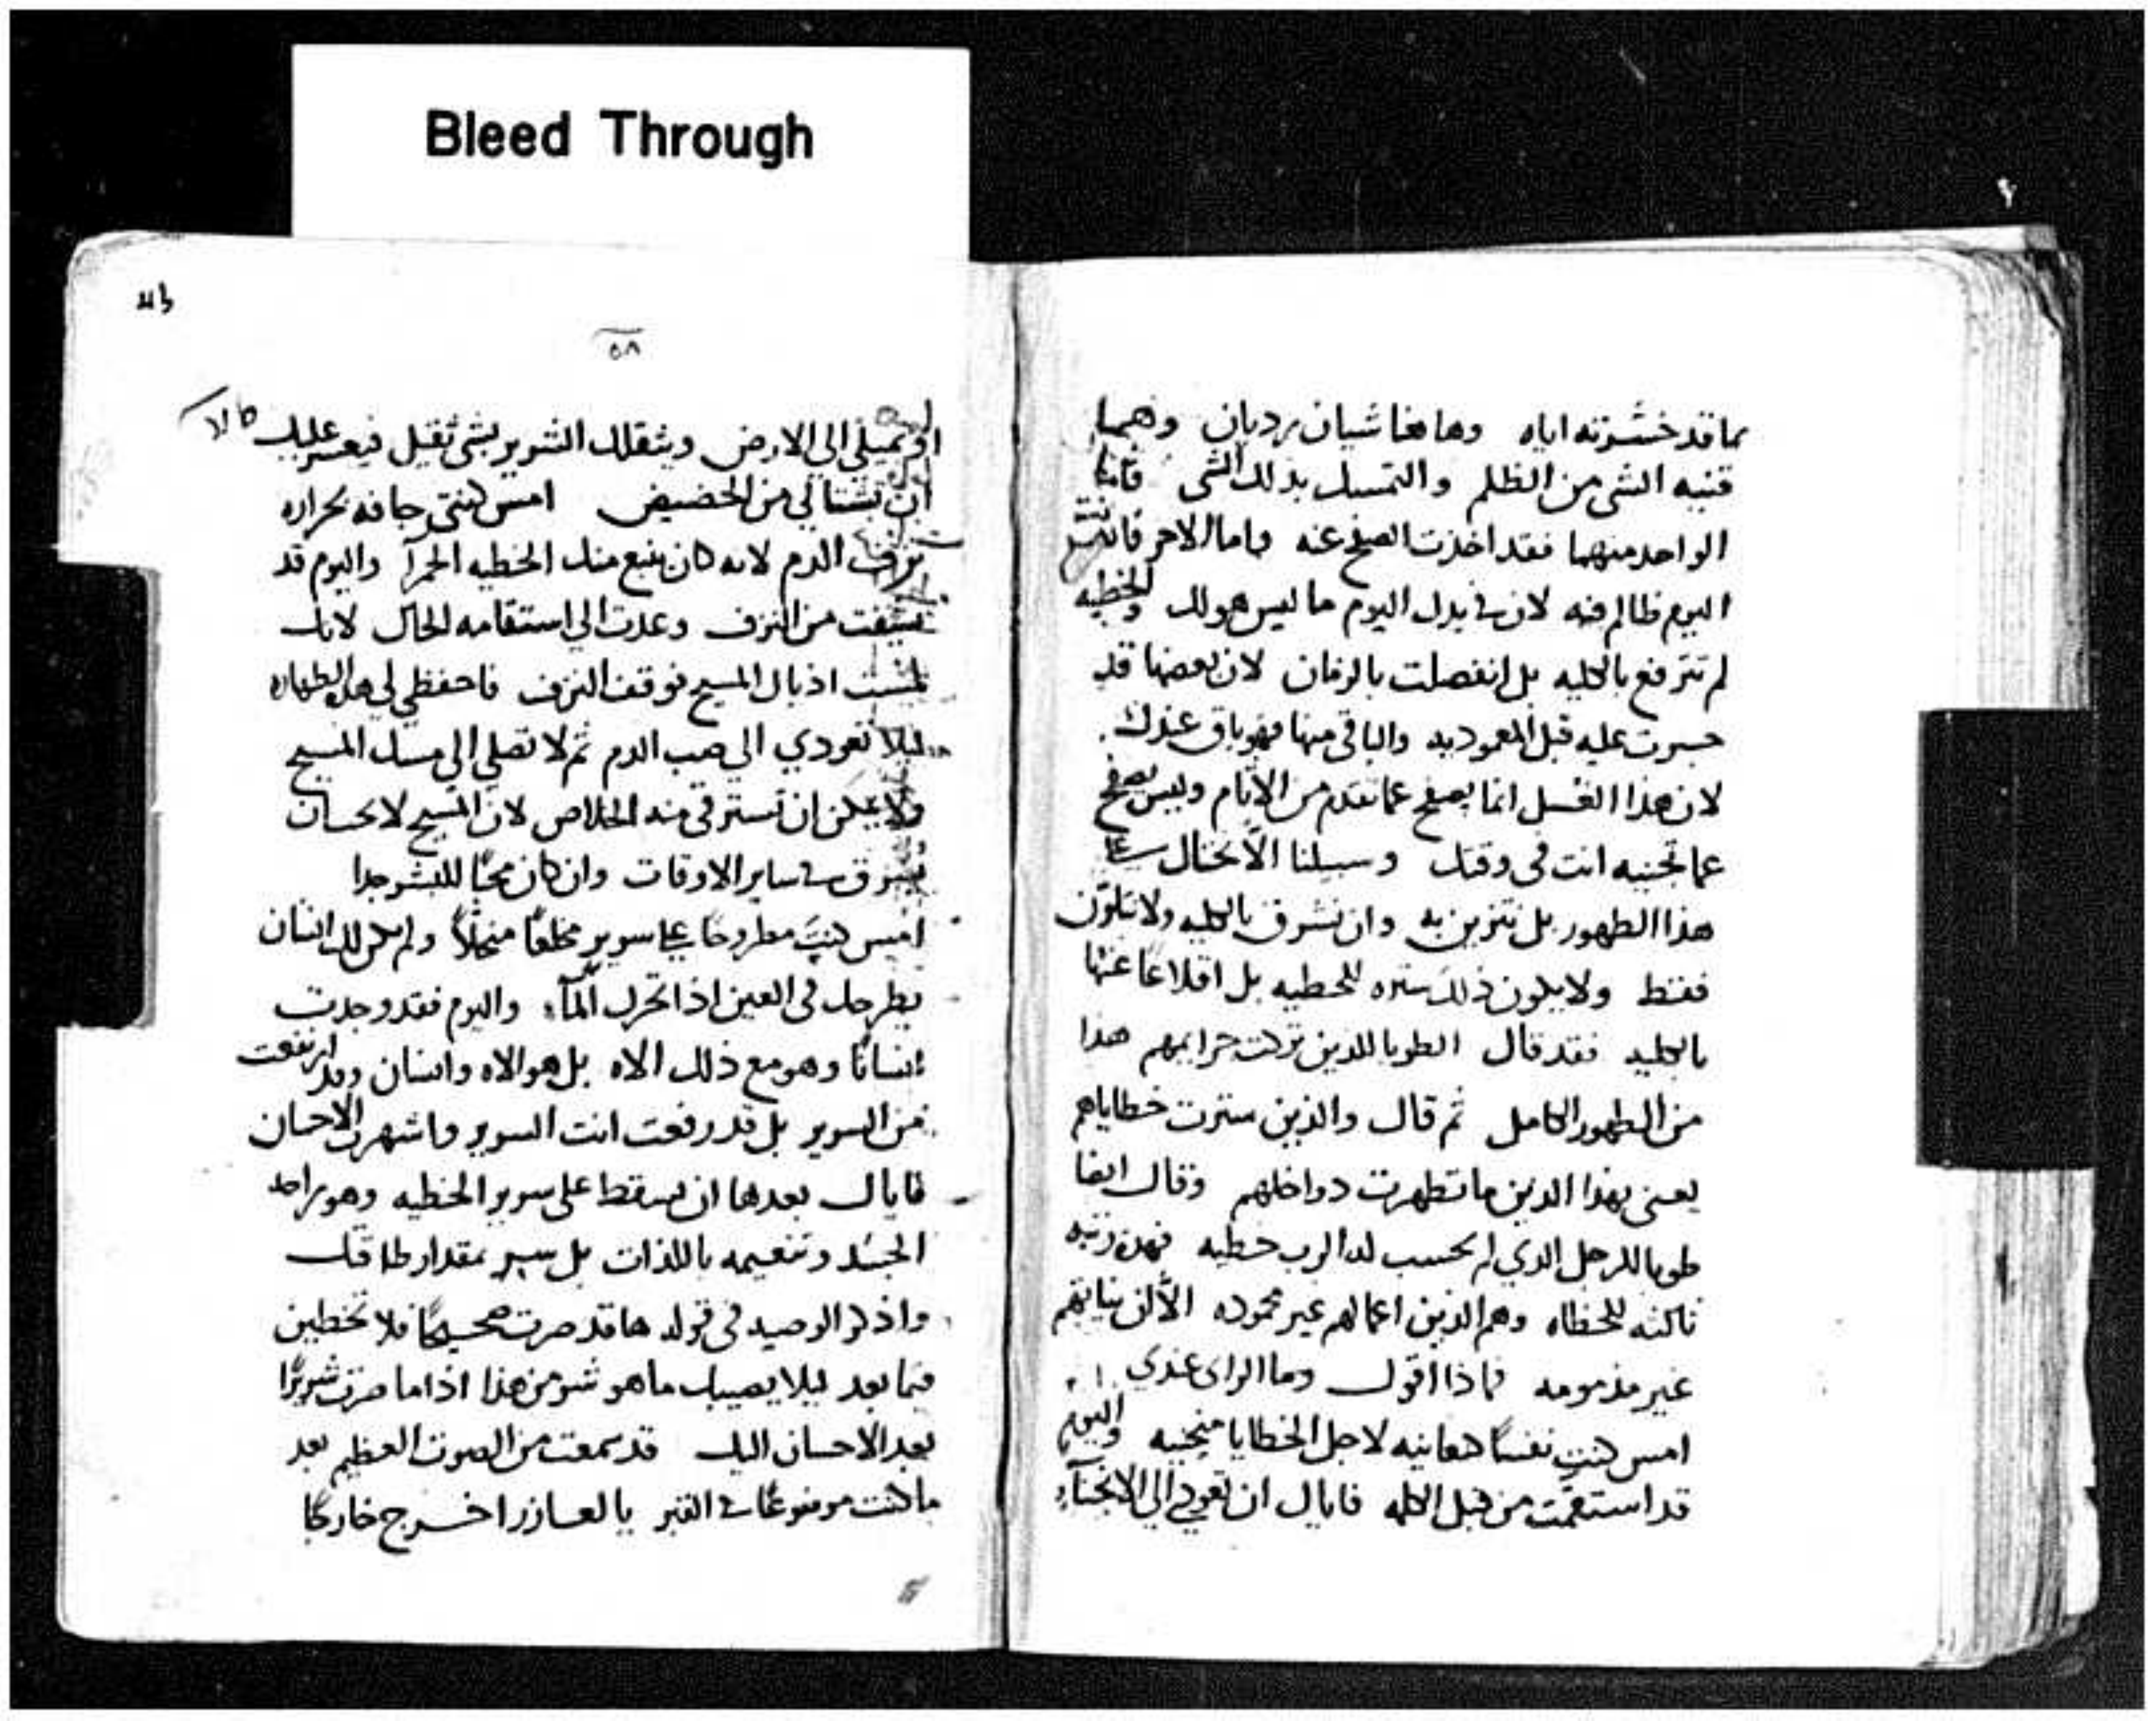 Bleed Through
بما قد خسرته اياه وهاهنا شيان رديان وهما
قنيه الشى من الظلم والتمسك بذلك الشى فاما
الواحد منهما فقد اخذت الصفح عنه واما الاخر فانت
اليوم ظالم فيه لان في يدك اليوم ما ليس هو لك والخطيه
لم ترتفع بالكليه بل انفصلت بالزمان لان بعضها قد
جسرت عليه قبل المعموديه والباقى منها فهو باق عندك
لان هذا الغسل انما يصفح عما تقدم من الاثام وليس يصفح
عما تجنيه انت فى وقتك وسبيلنا الا نختال على
هذا الطهور بل نتزين به وان نشرق بالكليه ولا نتلون
فقط ولا يكون ذلك ستره للخطيه بل اقلاعًا عنها
بالكليه فقد قال الطوبا للذين تركت جرايمهم هذا
من الطهور الكامل ثم قال والذين سترت خطاياهم
يعنى بهذا الذين ما تطهرت دواخلهم وقال ايضا
طوبا للرجل الدي لم يحسب له الرب خطيه فهذه رتبه
ثالثه للخطاه وهم الذين اعمالهم غير محموده الا ان نياتهم
غير مذمومه فماذا اقول وما الراى عندي
امس كنتِ نفسًا كنعانيه لاجل الخطايا منحنيه واليوم
قد استقمت من قبل الكلمه فاياك ان تعودي الى الانحناء
٥٨
او تميلي الى الارض ويثقلك الشرير بشى ثقيل فيعسر عليك
ان تنشالي من الحضيض امس كنتي جافه بحراره
نزف الدم لانه كان ينبع منك الخطيه الحمرآ واليوم قد
نشفت من النزف وعدت الى استقامه الحال لانك
لمست اذيال المسيح فوقف النزف فاحفظي لي هذه الطهاره
ليلا تعودي الي صب الدم ثم لا تصلي الي مسك المسيح
ولا يمكن ان تسترقي منه الخلاص لان المسيح لا يحب ان
يسرق في ساير الاوقات وان كان محبًا للبشر جدا
امس كنتَ مطروحًا على سرير مخلعًا منحلاً ولم يكن لك انسان
يطرحك فى العين اذا تحرك المآء واليوم فقد وجدت
انسانًا وهو مع ذلك الاه بل هو الاه وانسان وقد ارتفعت
من السرير بل قد رفعت انت السرير واشهرت الاحسان
فاياك بعدها ان تسقط على سرير الخطيه وهو راحه
الجسد وتنعيمه باللذات بل سير بمقدار طاقتك
واذكر الوصيه فى قوله ها قد صرت صحيحًا فلا تخطين
فيما بعد ليلا يصيبك ما هو شر من هذا اذا ما صرت شريرًا
بعد الاحسان اليك قد سمعت من الصوت العظيم بعد
ما كنت موضوعًا في القبر يا لعازر اخرج خارجًا